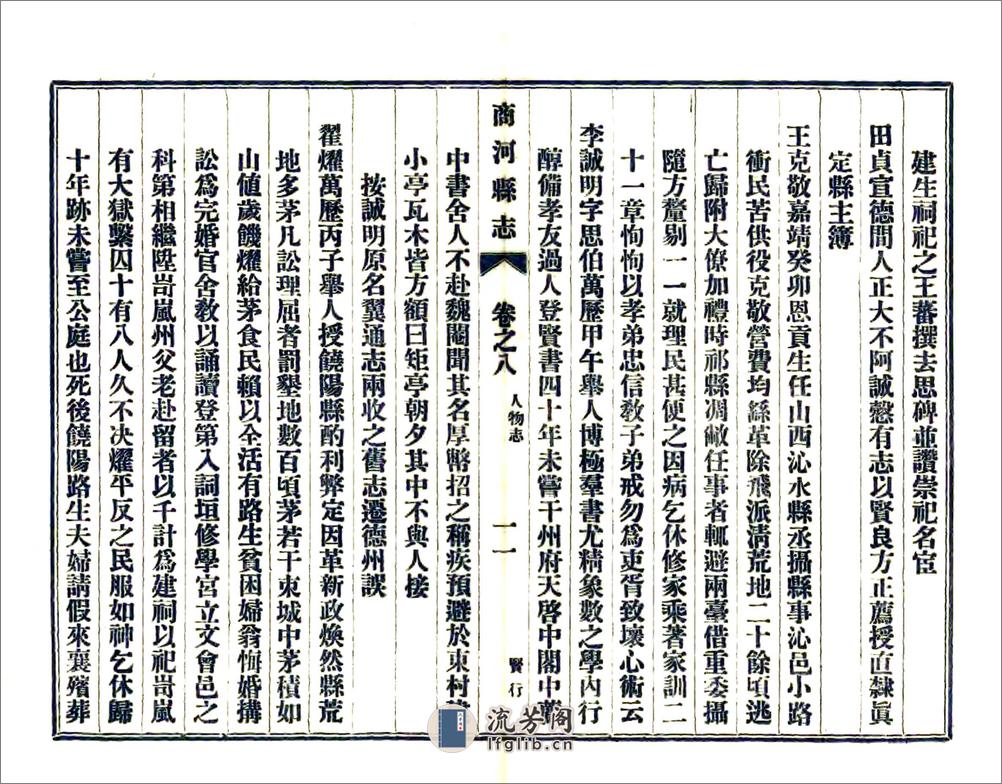 建生祠祀之王蕃撰去思碑並讚崇祀名宦
田貞宣德間人正大不阿誠慤有志以賢良方正薦授直隸眞
定縣主簿
王克敬嘉靖癸卯恩貢生任山西沁水縣丞攝縣事沁邑小路
衝民苦供役克敬營費均繇革除飛派清荒地二十餘頃逃
亡歸附大僚加禮時祁縣凋敝任事者輒避兩臺借重委攝
隨方釐剔一一就理民甚便之因病乞休修家乘著家訓二
十一章恂恂以孝弟忠信敎子弟戒勿爲吏胥致壞心術云
李誠明字思伯萬歷甲午舉人博極羣書尤精象數之學內行
醇備孝友過人登賢書四十年未嘗干州府天啓中閣中
商河縣志
卷之八
人物志
十一
賢行
中書舍人不赴魏閹聞其名厚幣招之稱疾預避於東村
小亭瓦木皆方額曰矩亭朝夕其中不與人接
按誠明原名翼通志兩收之舊志遷德州誤
翟燿萬歷丙子舉人授饒陽縣酌利弊定因革新政煥然縣荒
地多茅凡訟理屈者罰墾地數百頃茅若干束城中茅積如
山値歲饑燿給茅食民賴以全活有路生貧困婦翁悔婚搆
訟爲完婚官舍敎以誦讀登第入詞垣修學宮立文會邑之
科第相繼陞岢嵐州父老赴留者以千計爲建祠以祀岢嵐
有大獄繫囚十有八人久不决燿平反之民服如神乞休歸
十年跡未嘗至公庭也死後饒陽路生夫婦請假來襄殯葬
流芳阁
lfglib.cn